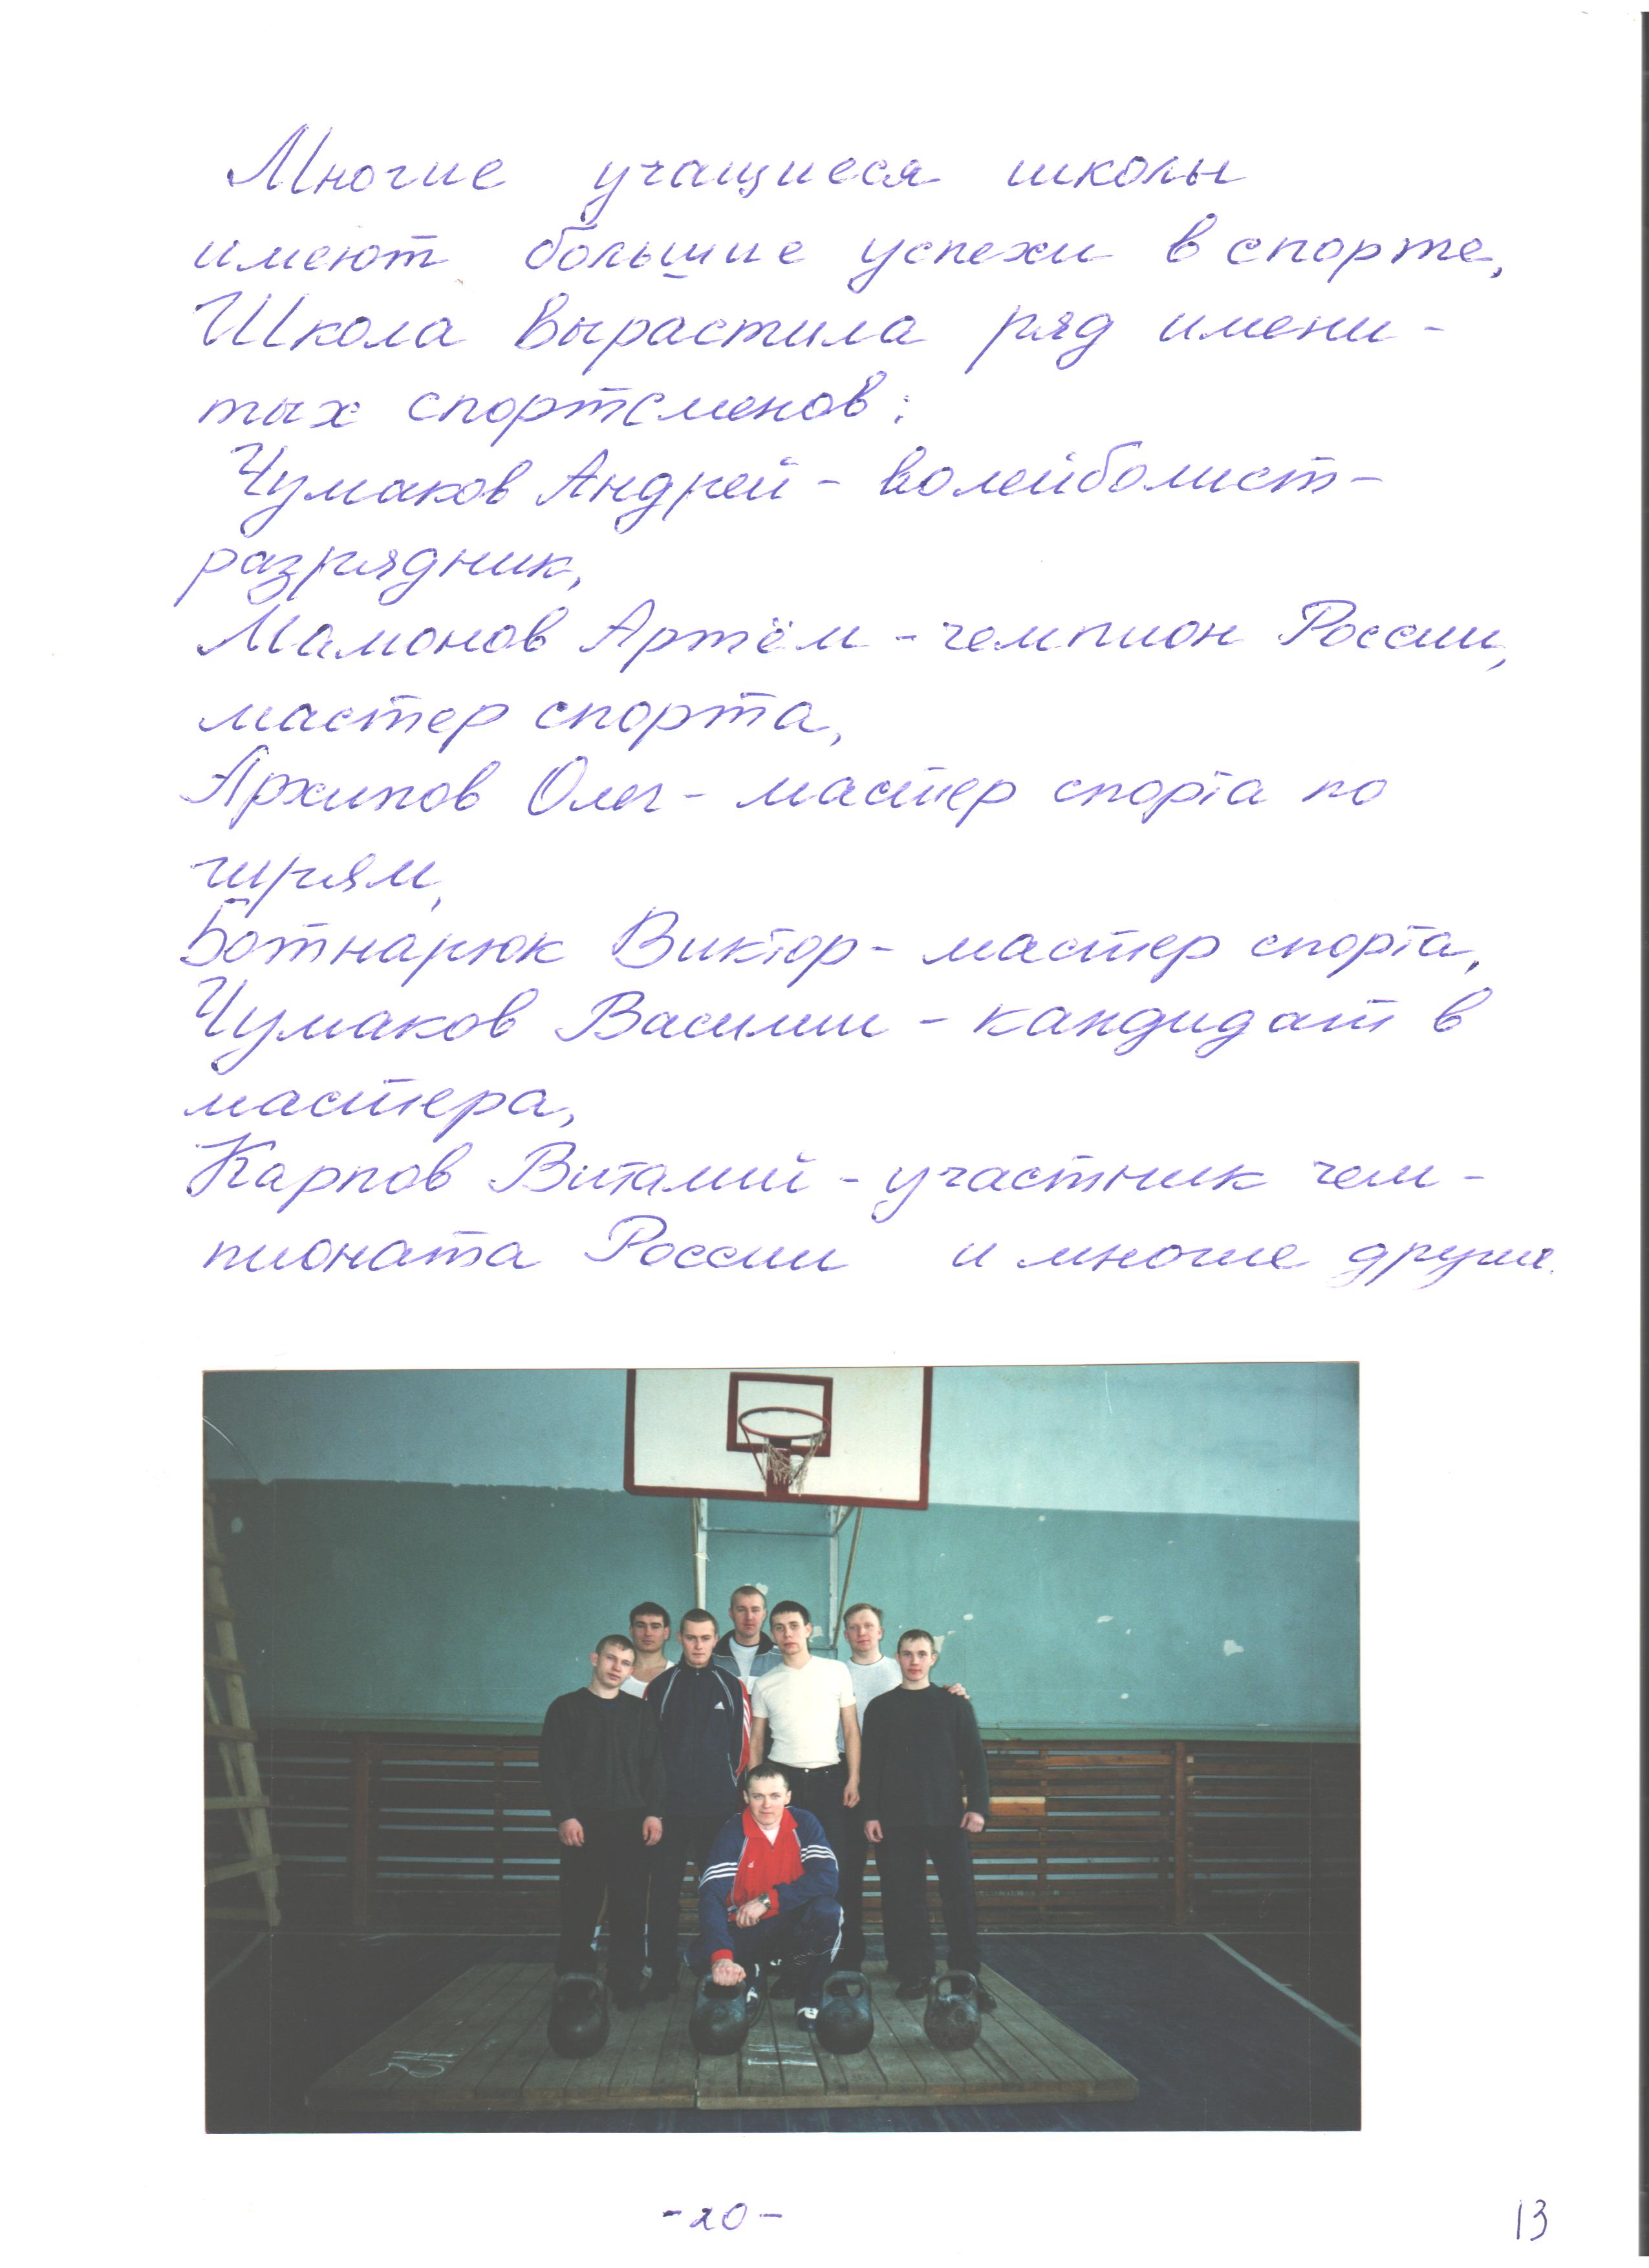 Многие учащиеся школы
имеют большие успехи в спорте,
Школа вырастила ряд имени-
тых спортсменов:
Чумаков Андрей - волейболист-
разрядник,
Мамонов Артём - чемпион России,
мастер спорта,
Архипов Олег - мастер спорта по
гирям,
Ботнарюк Виктор - мастер спорта,
Чумаков Василий - кандидат в
мастера,
Карпов Виталий - участник чем-
пионата России и многие другие.
-20-
13